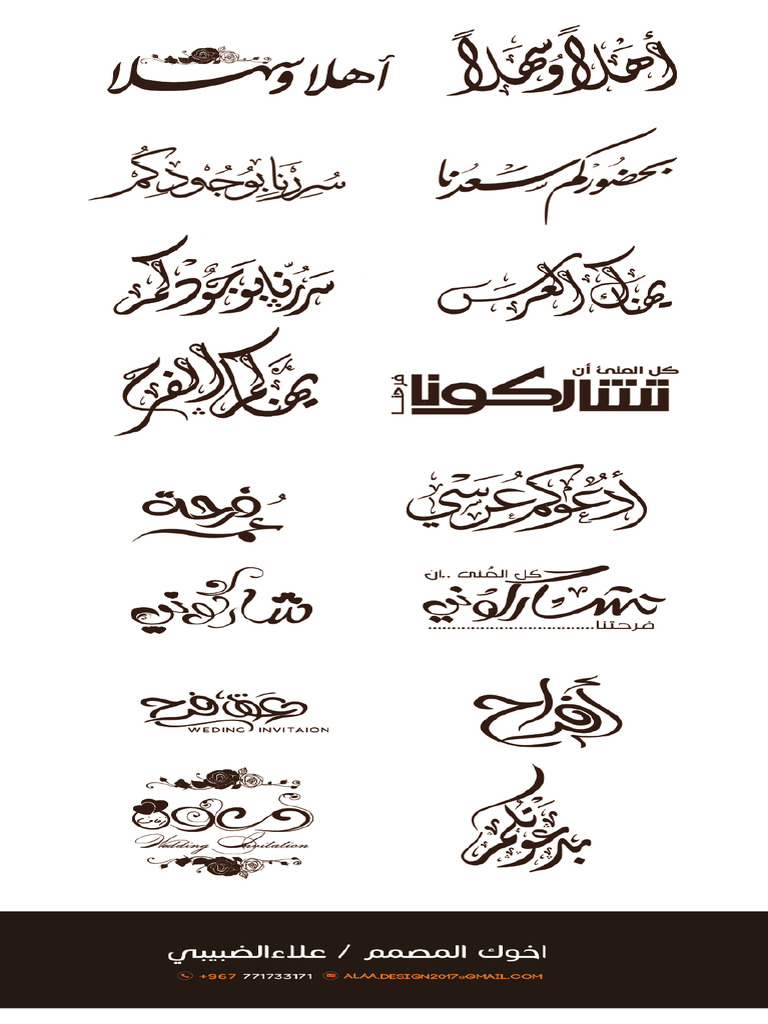 أهلاً وسهلاً
أهلا وسهلا
بحضوركم سعدنا
سررنا بوجودكم
يهناك العرس
سررنا بوجودكم
كل المنى أن
تشاركونا
فرحنا
يهناكم الفرح
أدعوكم عرسي
فرحة
عمر
كل المنى ..ان
تشاركوني
فرحتنا
شاركوني
أفراح
عبق فرح
WEDING INVITAION
بدعوتكم
دعوة
زفاف
Wedding Invitation
اخوك المصمم / علاءالضبيبي
+967 771733171 ALAA.DESIGN2017@GMAIL.COM